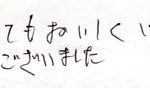 てもおいしくい
ございました